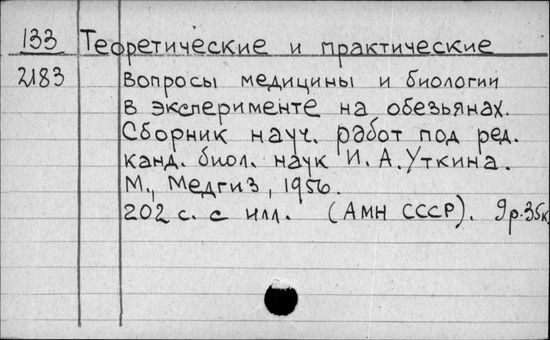 133 Теоретические и практические
2183 вопросы медицины и биологии
в эксперименте на обезьянах.
Сборник науч. работ под ред.
канд. биол. наук И. А. Уткина.
М., Медгиз, 1956.
202 с. с илл. (АМН СССР). 9р.35к